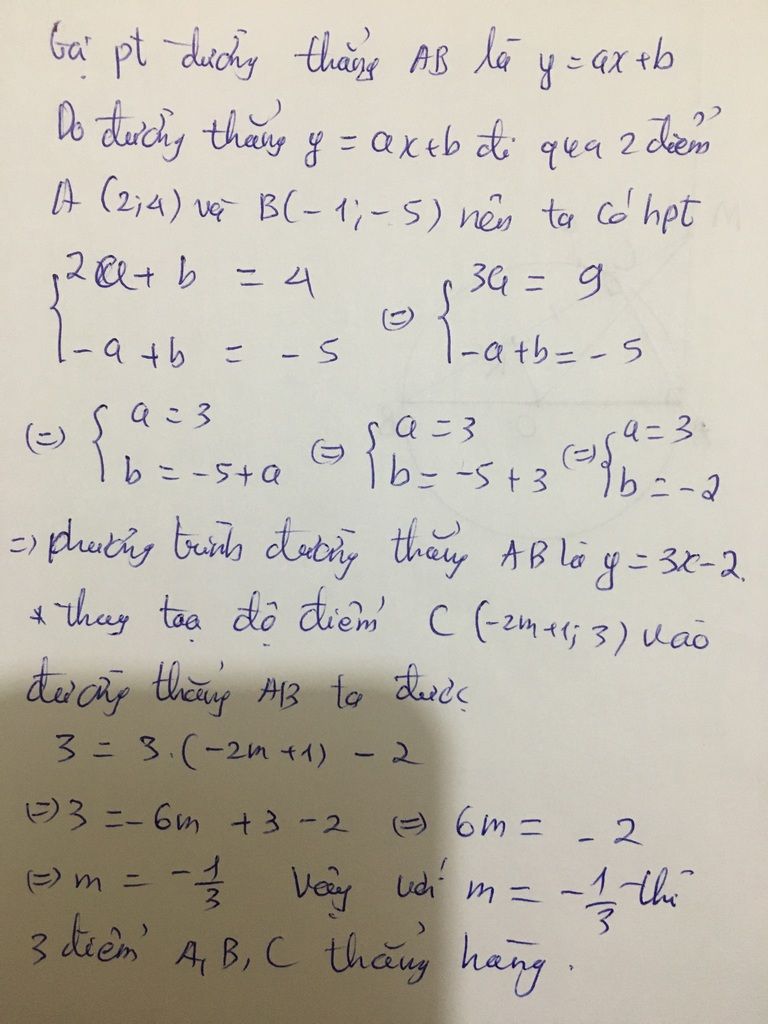 Gọi pt đường thẳng AB là y = ax + b
Do đường thẳng y = ax + b đi qua 2 điểm
A (2; 4) và B(-1; -5) nên ta có hpt
{ 2a + b = 4 ; -a + b = -5 (=) { 3a = 9 ; -a + b = -5
(=) { a = 3 ; b = -5 + a (=) { a = 3 ; b = -5 + 3 (=) { a = 3 ; b = -2
=> phương trình đường thẳng AB là y = 3x - 2.
* thay toạ độ điểm C (-2m+1; 3) vào
đường thẳng AB ta được
3 = 3.(-2m + 1) - 2
(=) 3 = -6m + 3 - 2 (=) 6m = -2
(=) m = -1/3 Vậy với m = -1/3 thì
3 điểm A, B, C thẳng hàng.